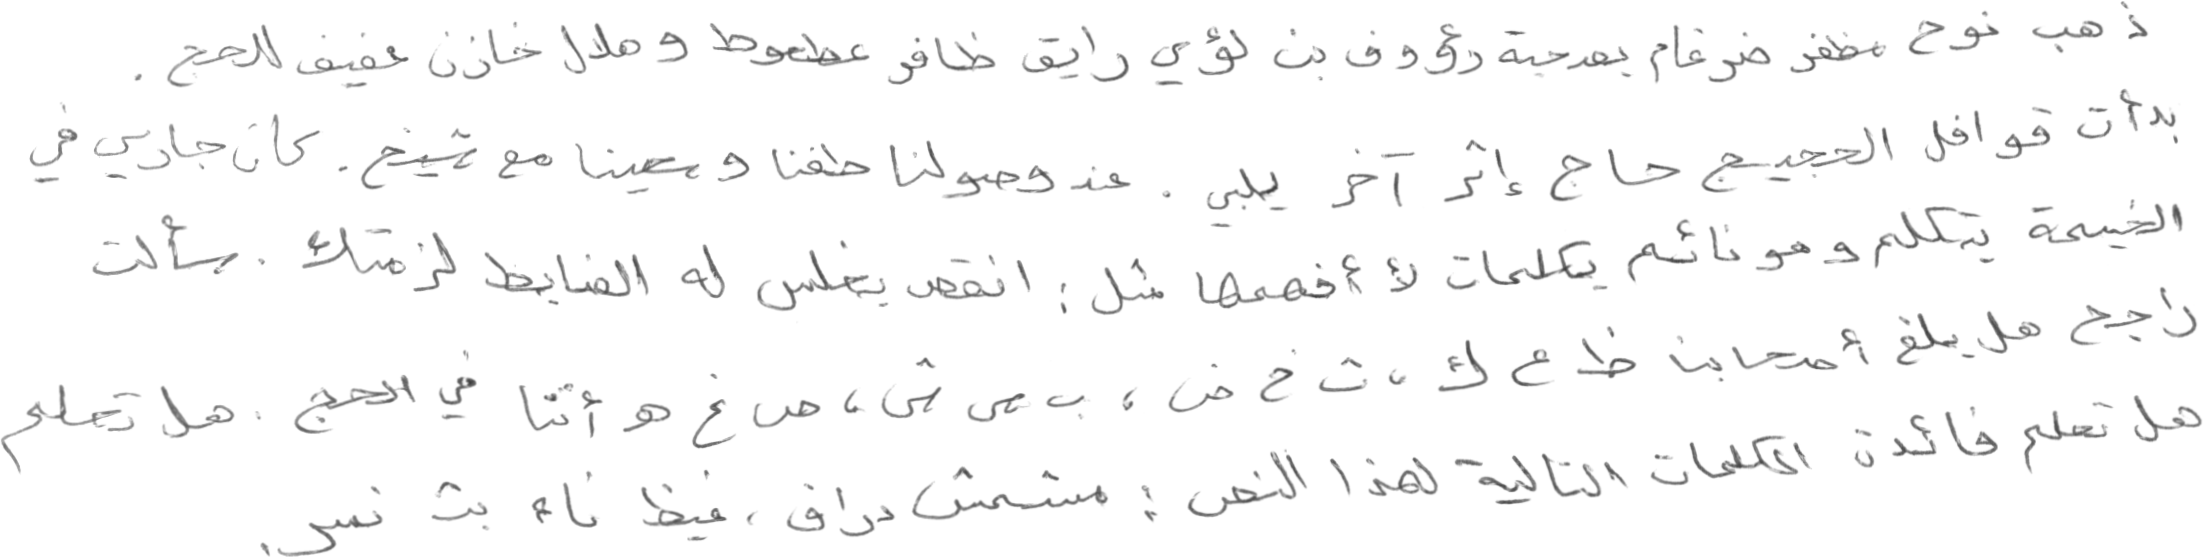 ذهب نوح مظفر ضرغام بصحبة رؤوف بن لؤي رايق ظافر عطعوط و هلال خازن عفيف للحج .
بدأت قوافل الحجيج حاج إثر آخر يلبي . عند وصولنا طفنا و سعينا مع شيخ . كان جاري في
الخيمة يتكلم و هو نائم بكلمات لا أفهمها مثل : انقص يغلس له الضابط لزمتك . سألت
راجح هل بلغ أصحابنا ظ ع ك ، ث خ ض ، ب س ش ، ص غ هو أننا في الحج . هل تعلم
هل تعلم فائدة الكلمات التالية لهذا النص : مشمش دراق ، غيظ ناء بث نسر .